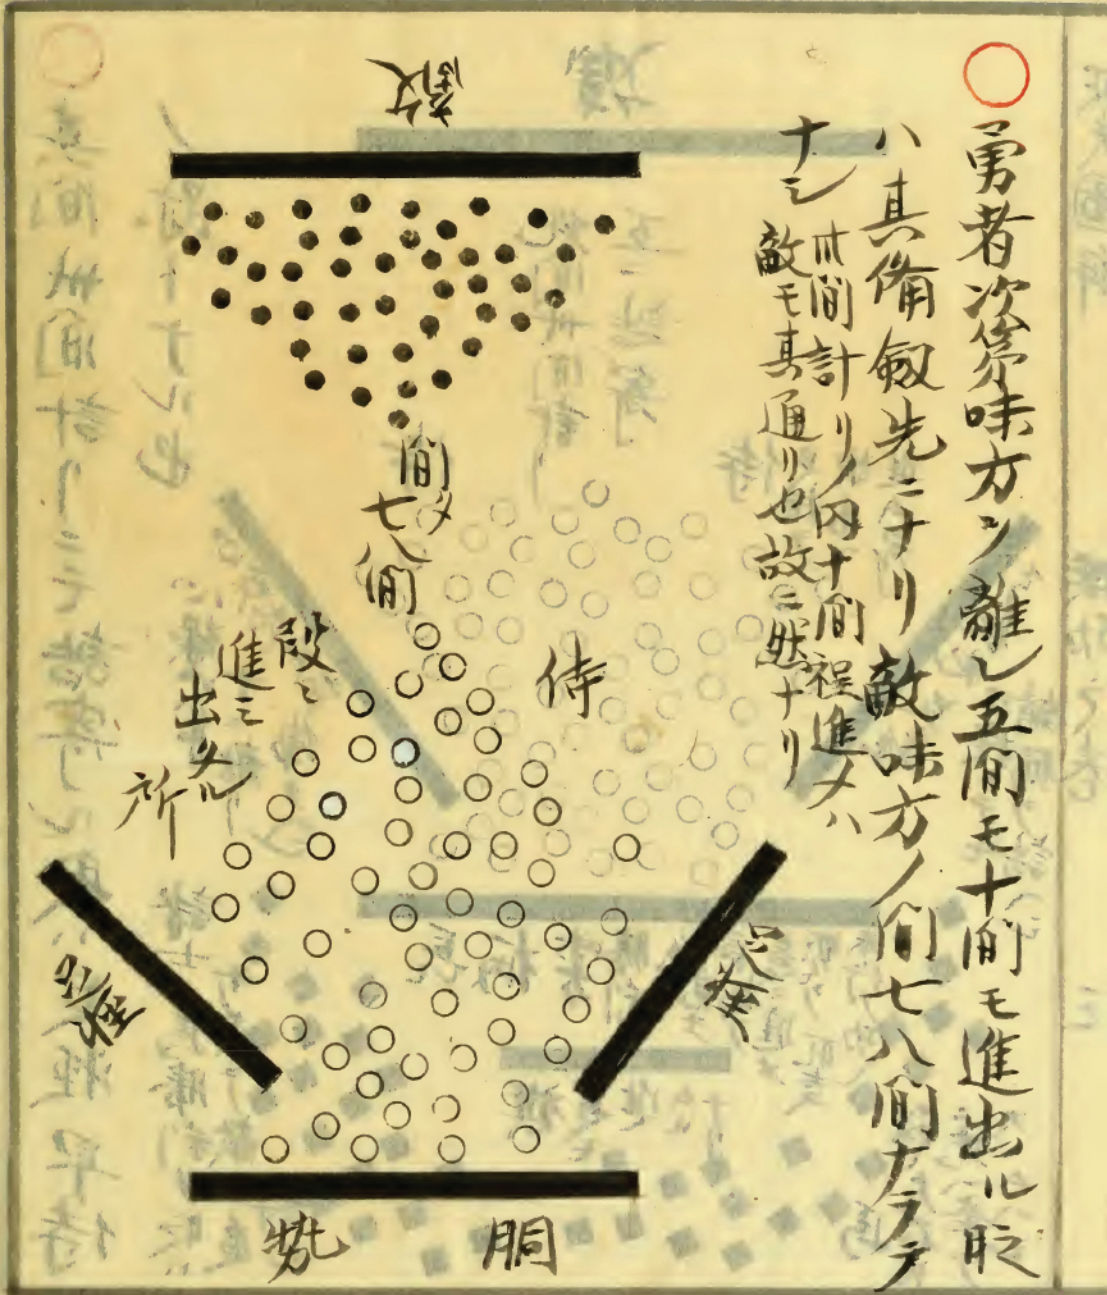 ○勇者次第味方ヲ離レ五間モ十間モ進出ル時
ハ其備劔先ニナリ敵味方ノ間七八間ナラテ
ナシ
廿間計リノ内十間程進メハ
敵モ其通リ也故ニ然ナリ
敵
間メ
七八間
侍
段ミ
進ミ
出タル
所
足軽
足軽
胴
勢